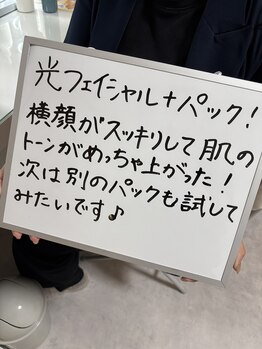 光フェイシャル+パック!
横顔がスッキリして肌の
トーンがめっちゃ上がった!
次は別のパックも試して
みたいです♪